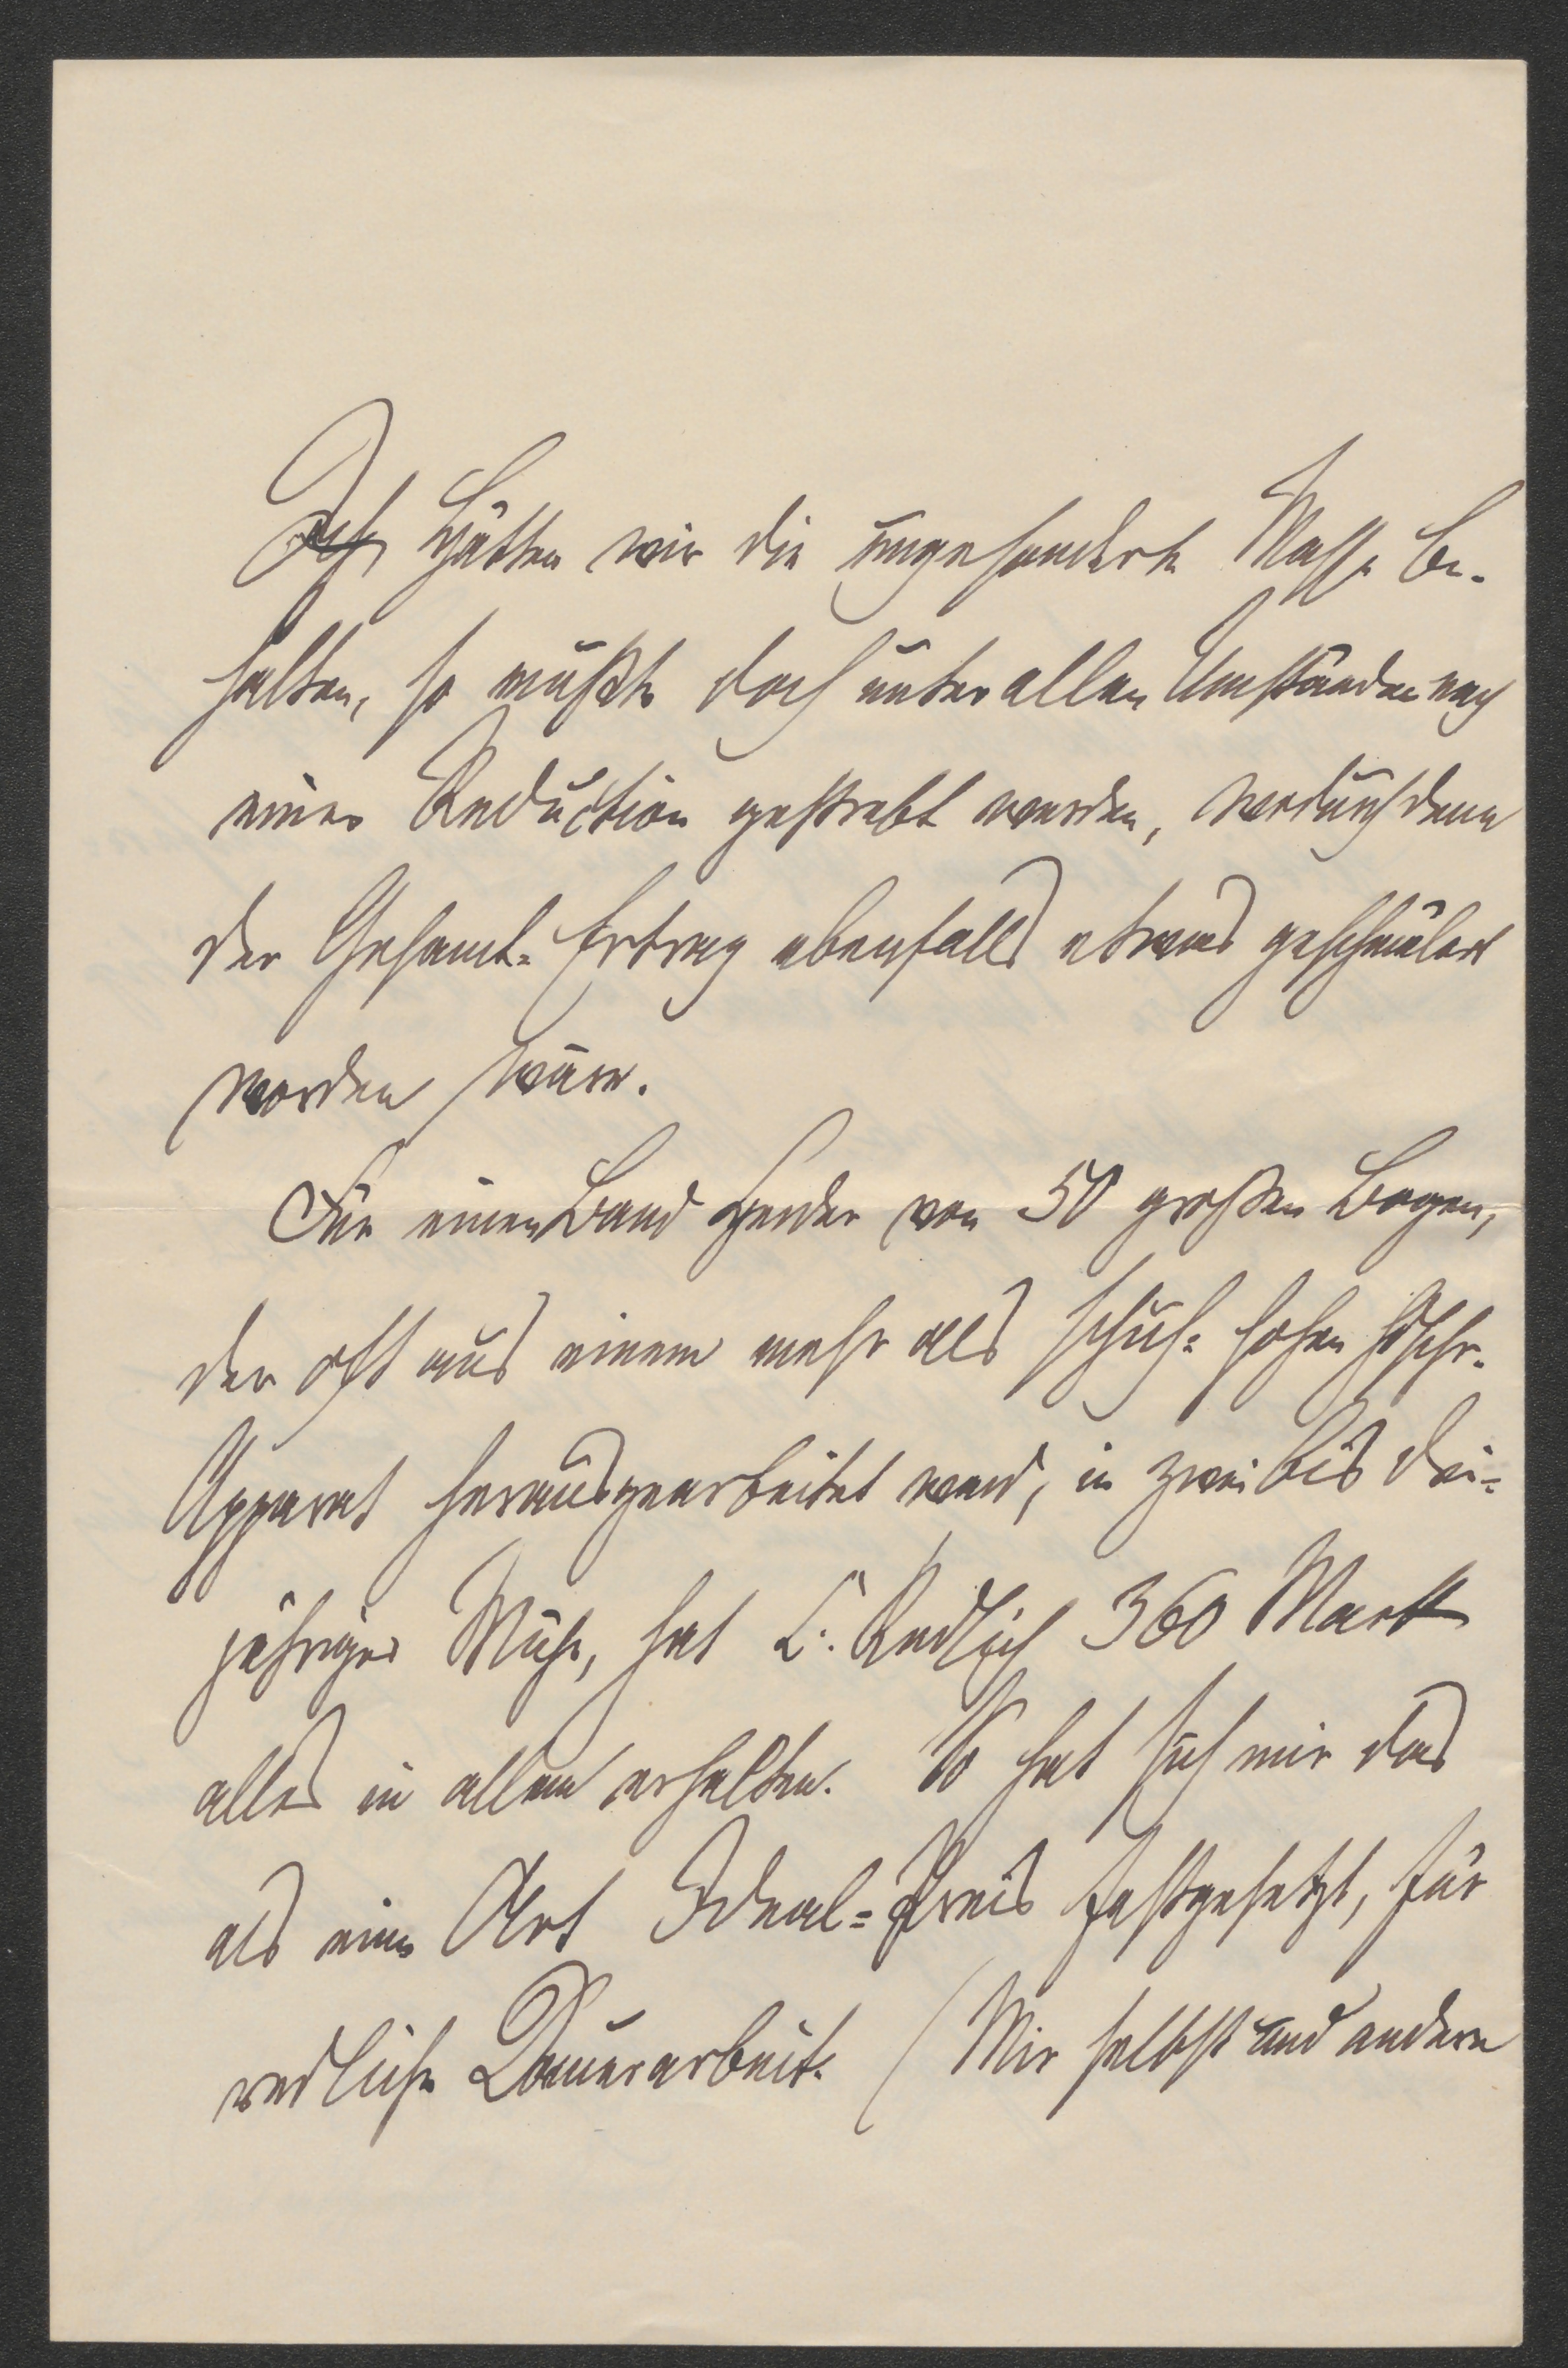 Ich Hätten wir die ungesonderte Masse be-
halten, so mußte doch unter allen Umständen nach
einer Reduction gestrebt werden, wodurch denn
der Gesamt-Ertrag ebenfalls etwas geschmälert
worden wäre.
Für einen Band Herder von 50 großen Bogen,
der oft aus einem mehr als schuh-hohen hdschr.
Apparat herausgearbeitet ward, in zwei bis drei-
jähriger Mühe, hat C. Redlich 360 Mark
alles in allem erhalten. So hat sich mir das
als eine Art Ideal-Preis festgesetzt, für
redliche Dauerarbeit. (Mir selbst und andern